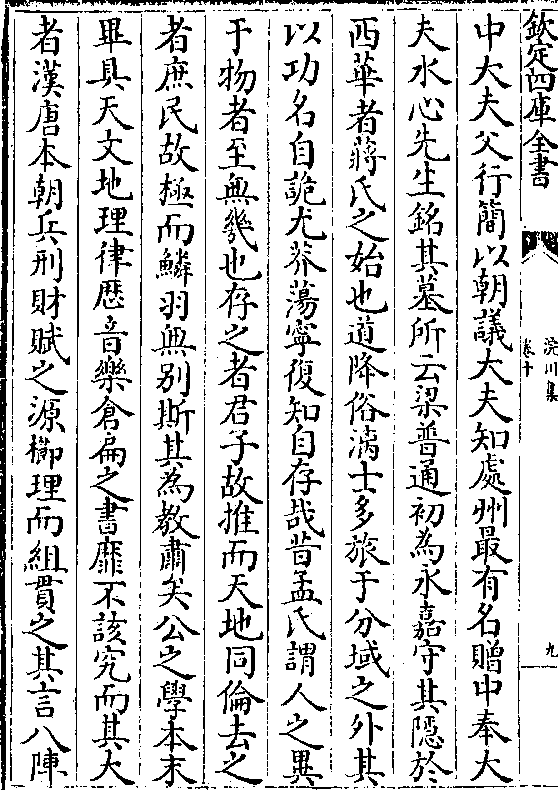 欽定四庫全書
浣川集
卷十
九
中大夫父行簡以朝議大夫知處州最有名贈中奉大
夫水心先生銘其墓所云梁普通初為永嘉守其隱於
西華者蔣氏之始也道降俗漓士多旅于分域之外其
以功名自詭尤莽蕩寧復知自存哉昔孟氏謂人之異
于物者至無幾也存之者君子故推而天地同倫去之
者庶民故極而鱗羽無别斯其為教肅矣公之學本末
畢具天文地理律歴音樂倉扁之書靡不該究而其大
者漢唐本朝兵刑財賦之源櫛理而組貫之其言八陣